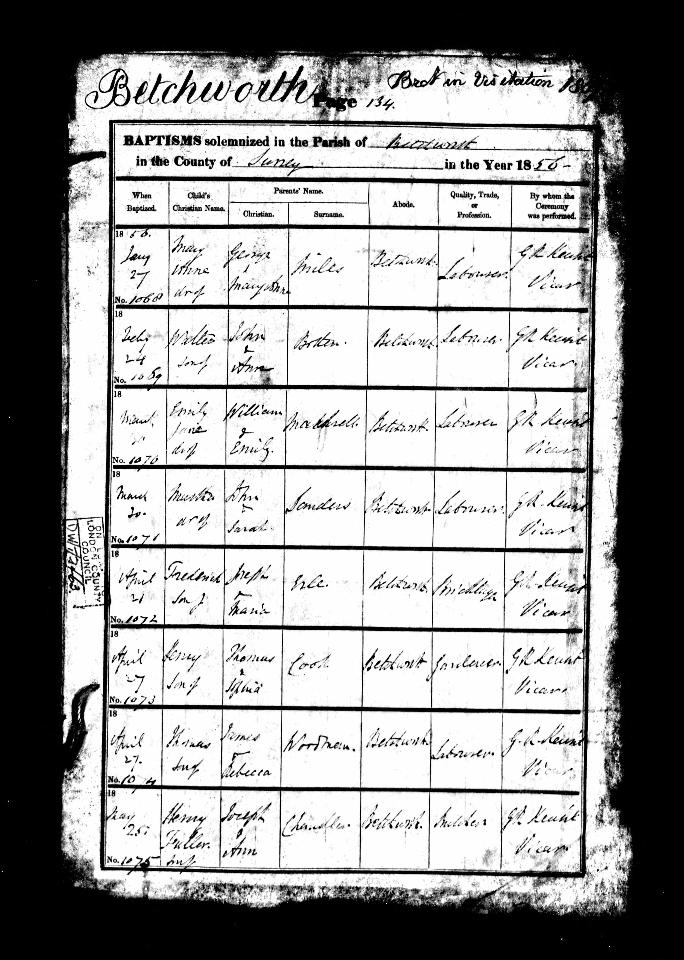 Betchworth
Bect in Visitation 18
Page 134.
BAPTISMS solemnized in the Parish of Betchworth
in the County of Surrey in the Year 1856
When Baptized. Child's Christian Name. Parents' Name. Christian. Surname. Abode. Quality, Trade, or Profession. By whom the Ceremony was performed.
1856.
Jany 27 Mary Anne dr of George & Mary Anne Miles Betchworth Labourer G R Kensit Vicar
No. 1068
18
Feby 24 Walter son of John & Ann Botten Betchworth Labourer G R Kensit Vicar
No. 1069
18
March Emily Jane dr of William & Emily Betchworth Labourer G R Kensit Vicar
No. 1070
18
March 30 Martha dr of John & Sarah Sanders Betchworth Labourer G R Kensit Vicar
No. 1071
18
April 21 Frederick son of Joseph & Maria Erle Betchworth Bricklayer G R Kensit Vicar
No. 1072
18
April 27 Henry son of Thomas & Sophia Cook Betchworth Gardener G R Kensit Vicar
No. 1073
18
April 27. Thomas son of James & Rebecca Woodman Betchworth Labourer G. R. Kensit Vicar
No. 1074
18
May 25 Henry Fuller son of Joseph & Ann Chandler Betchworth Butcher G R Kensit Vicar
No. 1075
LONDON COUNTY
COUNCIL